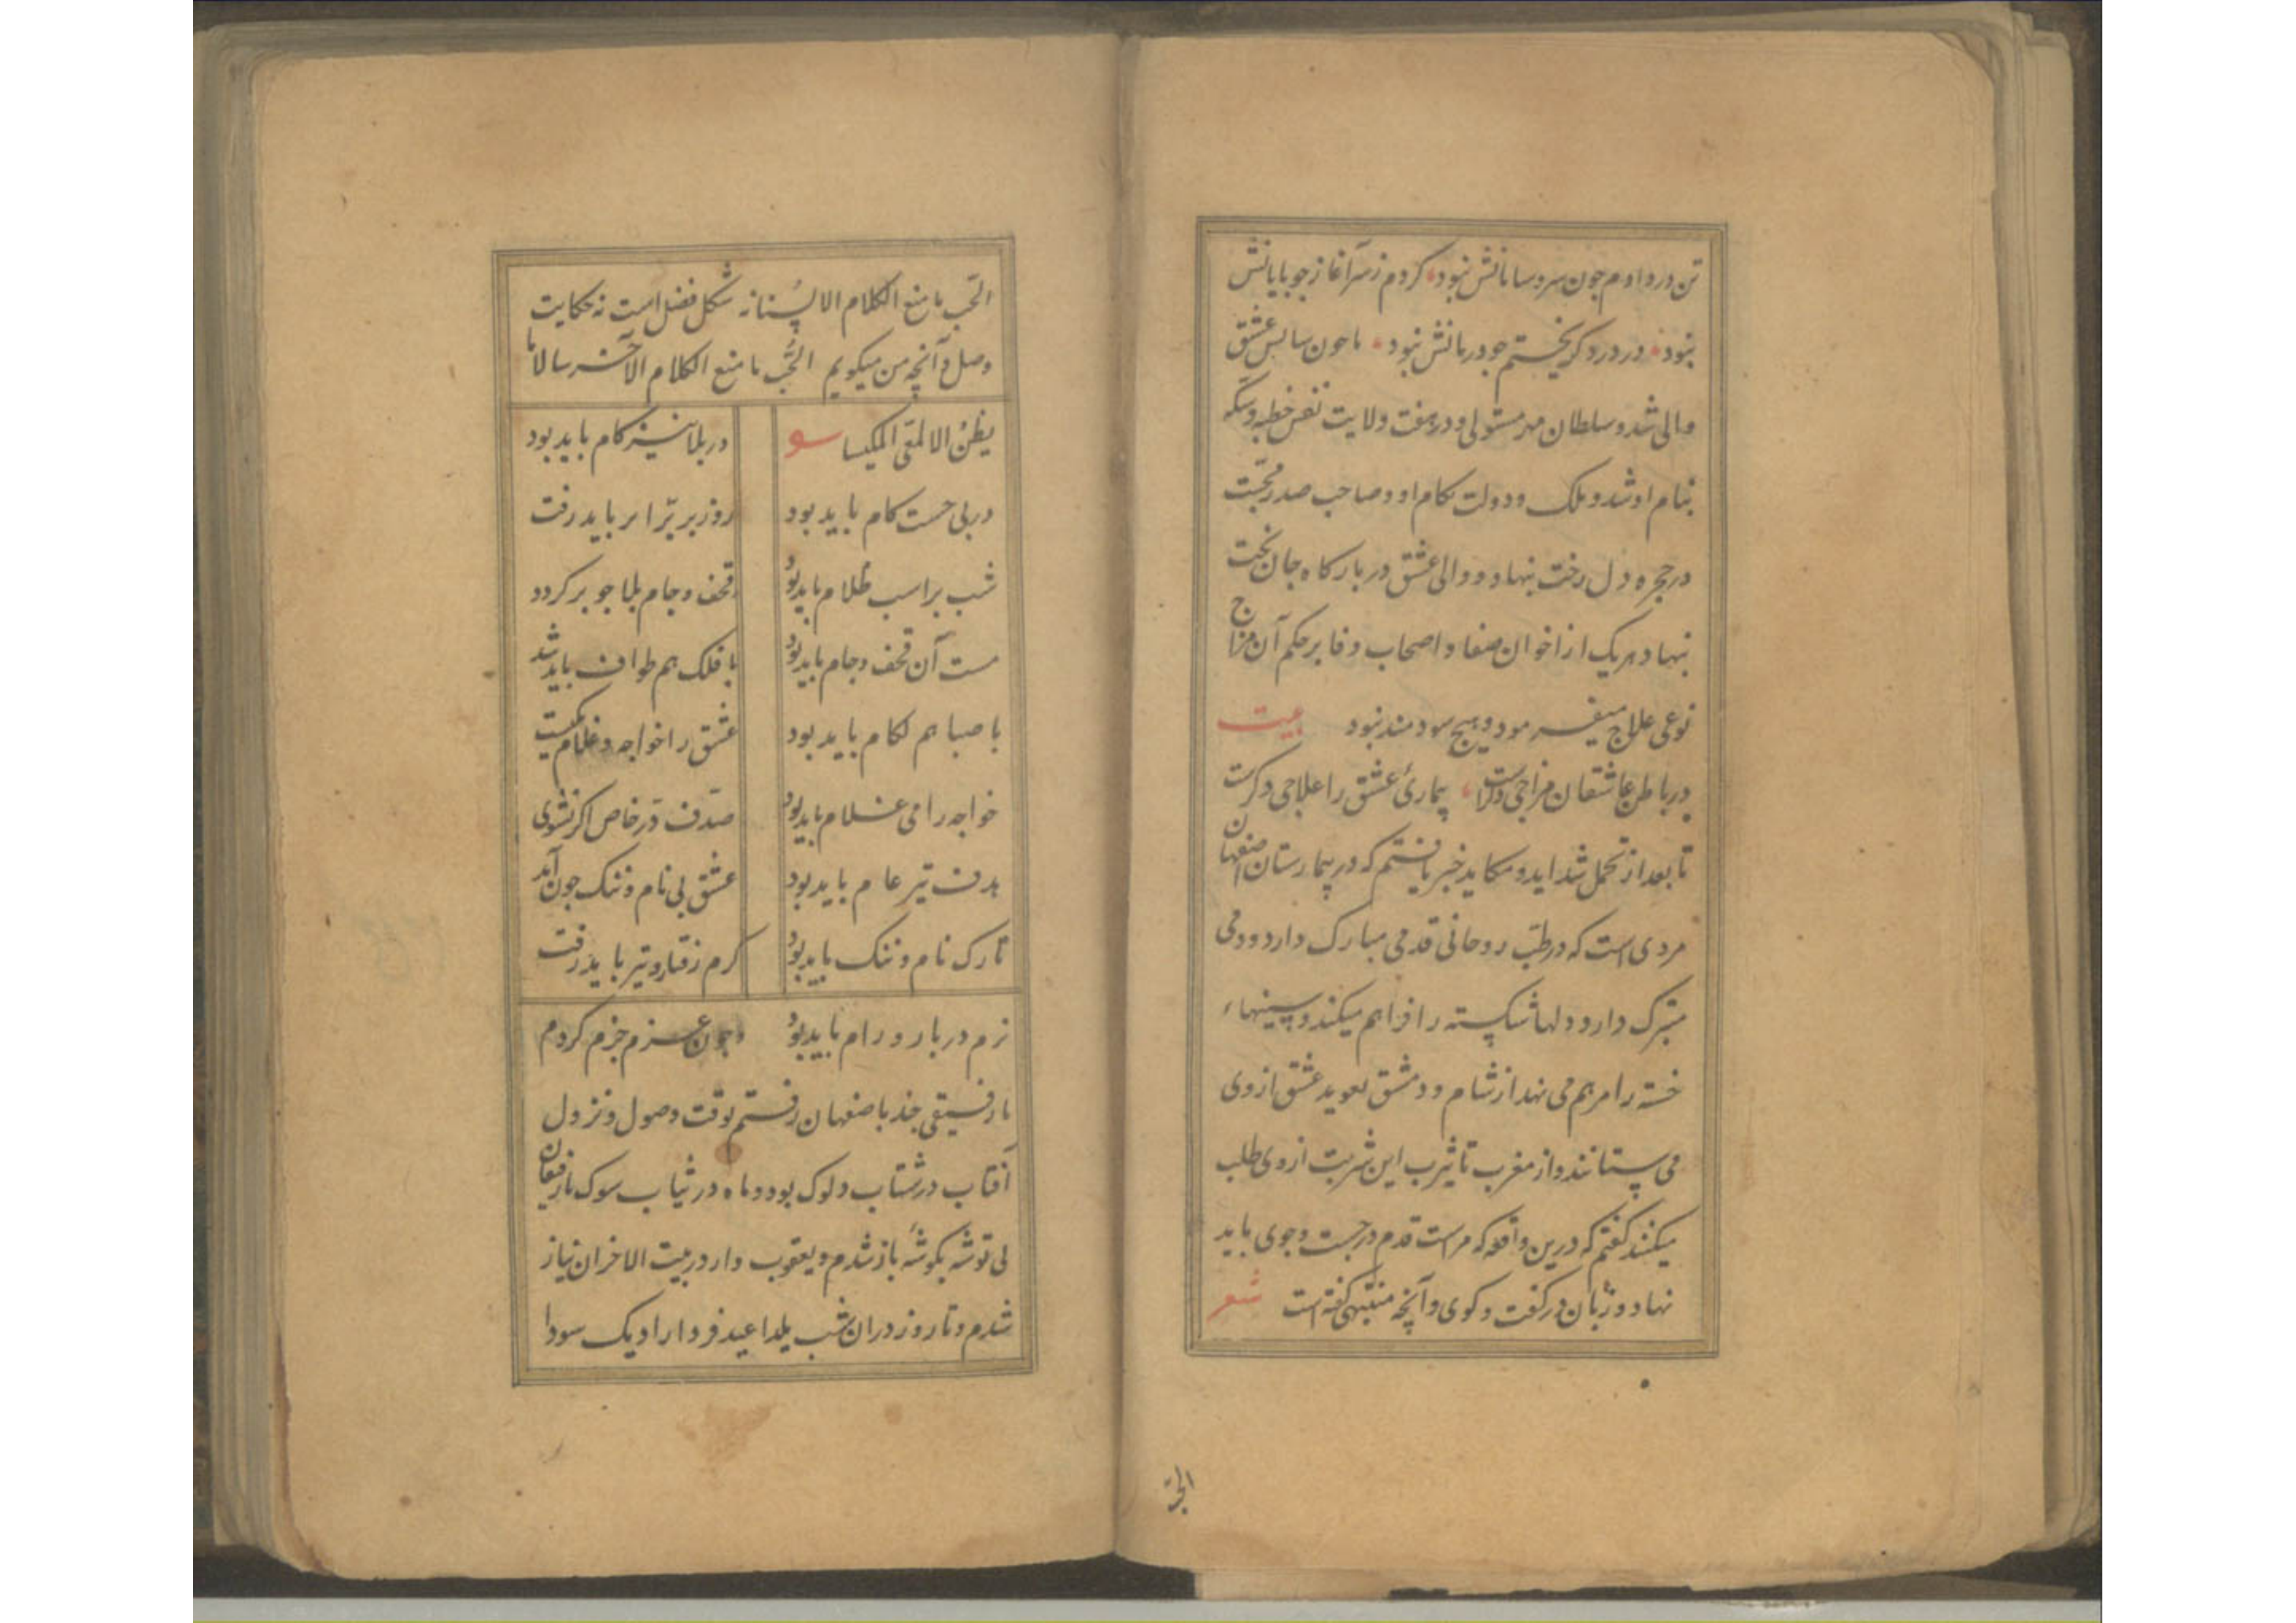 تن در دادم چون سر و سامانش نبود کردم ز سر آغاز چو پایانش
نبود در درد گریختم چو درمانش نبود تا چون سایس عشق
والی شد و سلطان مهر مستولی و در هفت ولایت نفس خطبه و سکه
بنام او شد و ملک و دولت بکام او و صاحب صدر محبت
در حجره دل رخت نهاد و والی عشق در بارگاه جان تخت
نهاد هر یک از اخوان صفا و اصحاب وفا بر حکم آن مزاج
نوعی علاج میفرمود و هیچ سودمند نبود بیت
در باطن عاشقان مزاجی دگرست بیماری عشق را علاجی دگرست
تا بعد از تحمل شداید و مکاید خبر یافتم که در بیمارستان اصفهان
مردی است که در طب روحانی قدمی مبارک دارد و دمی
متبرک دارد و دلها شکسته را فراهم میکند و سینهاء
خسته را مرهم می نهد از شام و دمشق تعوید عشق از وی
می ستانند و از مغرب تا یثرب این شربت از وی طلب
میکنند گفتم که درین واقعه که مراست قدم در جست و جوی باید
نهاد و زبان در گفت و گوی و آنچه متنبی گفته است شعر
الحب
الحب ما منع الکلام الالسنا نه شکل فضل است نه حکایت
وصل و آنچه من میگویم الحب ما منع الکلام الآخرسا لا ما
یظن الالمعی الکیسا در بلا نیز کام باید بود
در پی جست کام باید بود روز بر برابر باید رفت
شب بر اسب ظلام باید بود قحف و جام بلا چو بر گردد
مست آن قحف و جام باید بود با فلک هم طواف باید شد
با صبا هم لکام باید بود عشق را خواجه و غلام یکیست
خواجه را می غلام باید بود صدف در خاص اگر نشوی
هدف تیر عام باید بود عشق بی نام و ننگ چون آمد
تارک نام و ننگ باید بود گرم رفتار و تیز باید رفت
نرم دربار و رام باید بود و چون عزم جزم کردم
با رفیقی چند باصفهان رفتم بوقت وصول و نزول
آفتاب در شتاب دلوک بود و ماه در ثیاب سوک با رفیقان
بی توشه بگوشه باز شدم و یعقوب وار در بیت الاحزان نیاز
شدم و تا روز در ان شب یلدا عید فردا را دیک سودا